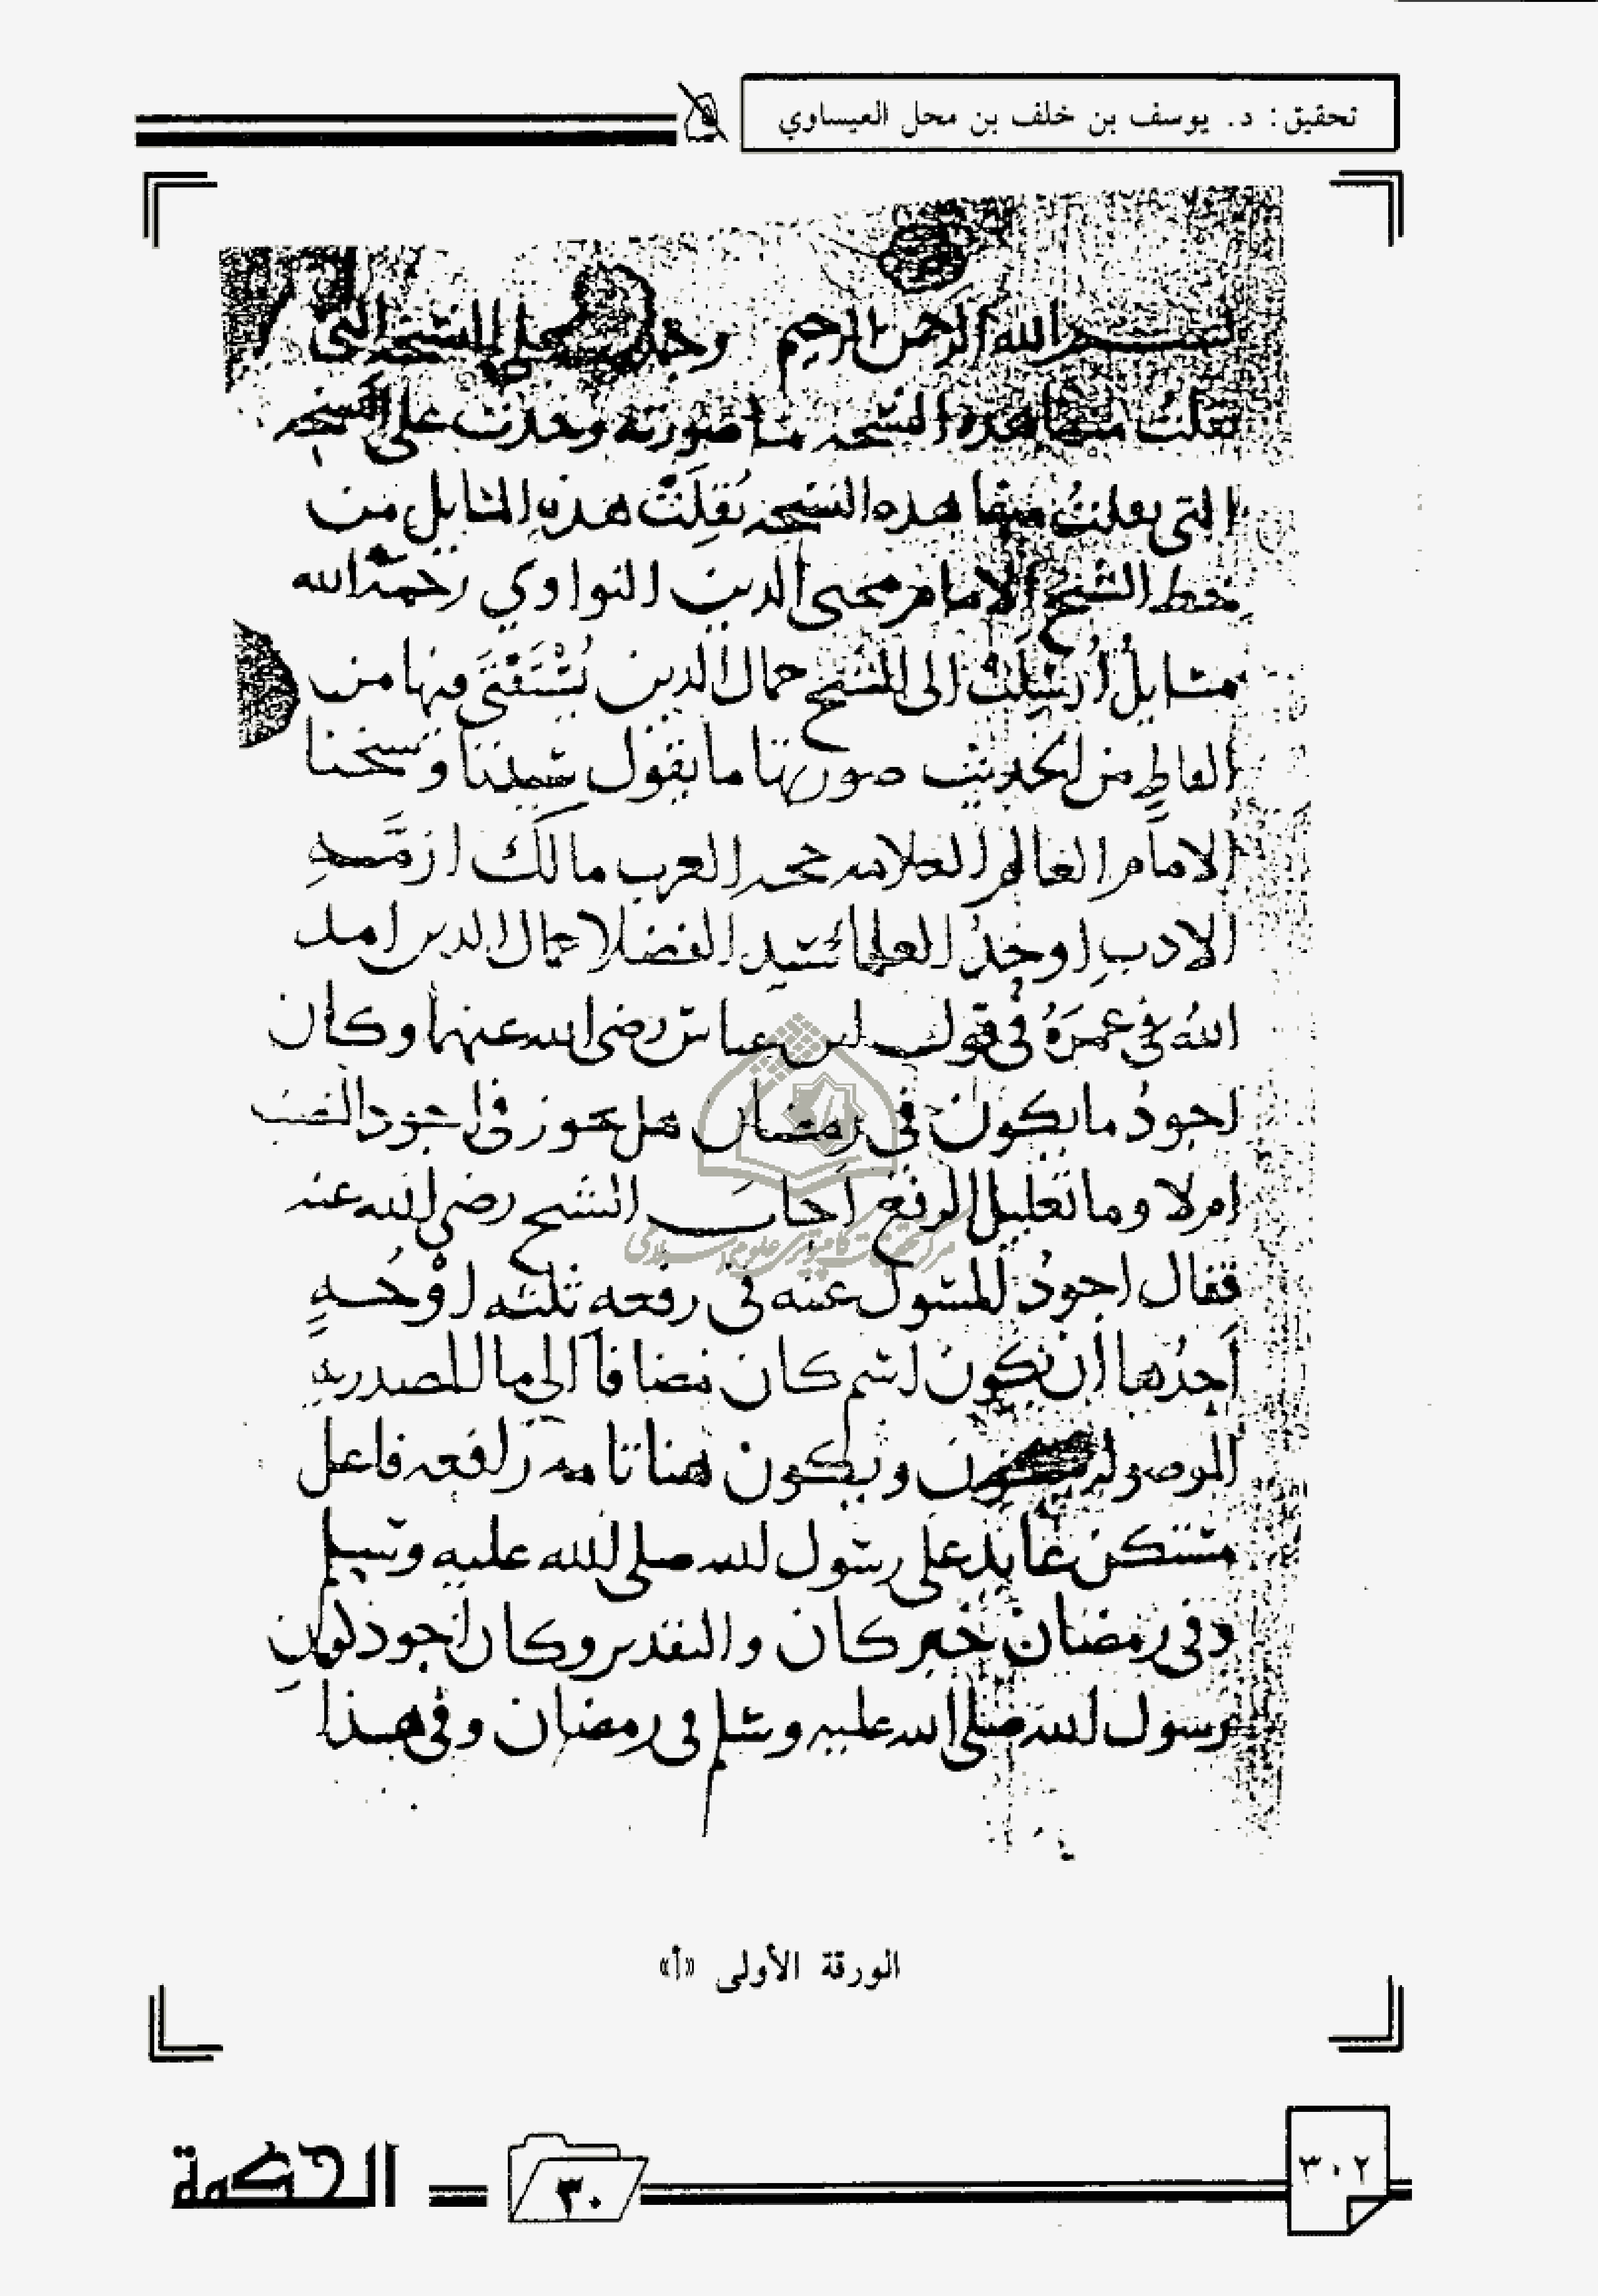 تحقيق: د. يوسف بن خلف بن محل العيساوي
بسم الله الرحمن الرحيم وجد على النسخه التي
نقلت منها هذه النسخه ما صورته وجدت على النسخه
التي نقلت منها هذه النسخه نُقِلَتْ هذه المسايل من
خط الشيخ الامام محيي الدين النواوي رحمه الله
مسايلُ اُرسِلَتْ الى الشيخ جمال الدين يُسْتَفْتَى فيها من
الفاظٍ من الحديث صورتها ما يقول سيدنا وشيخنا
الامام العالم العلامه حجه العرب مالك ازمَّهِ
الادبِ اوحدُ العلما سيد الفضلا جمال الدين امد
اللهُ في عمرهُ في قول ابن عباس رضي الله عنهما وكان
اجودُ ما يكون في رمضان هل يجوز في اجود النصب
ام لا وما تعليل الرفع اجابَ الشيخ رضي الله عنه
فقال اجودُ المسول عنه في رفعه ثلثه اوْجُهٍ
احدُها أن تكون اسم كان مضافاً الى ما المصدريه
الموصوله بيكون ويكون هنا تامه رافعه فاعل
مستكن عايد على رسول الله صلى الله عليه وسلم
وفي رمضان خبر كان والتقدير وكان اجود كونِ
رسول الله صلى الله عليه وسلم في رمضان وفي هذا
مركز تحقيقات كامپيوتري علوم اسلامي
الورقة الأولى «أ»
٣٠٢
٣٠
الحكمة